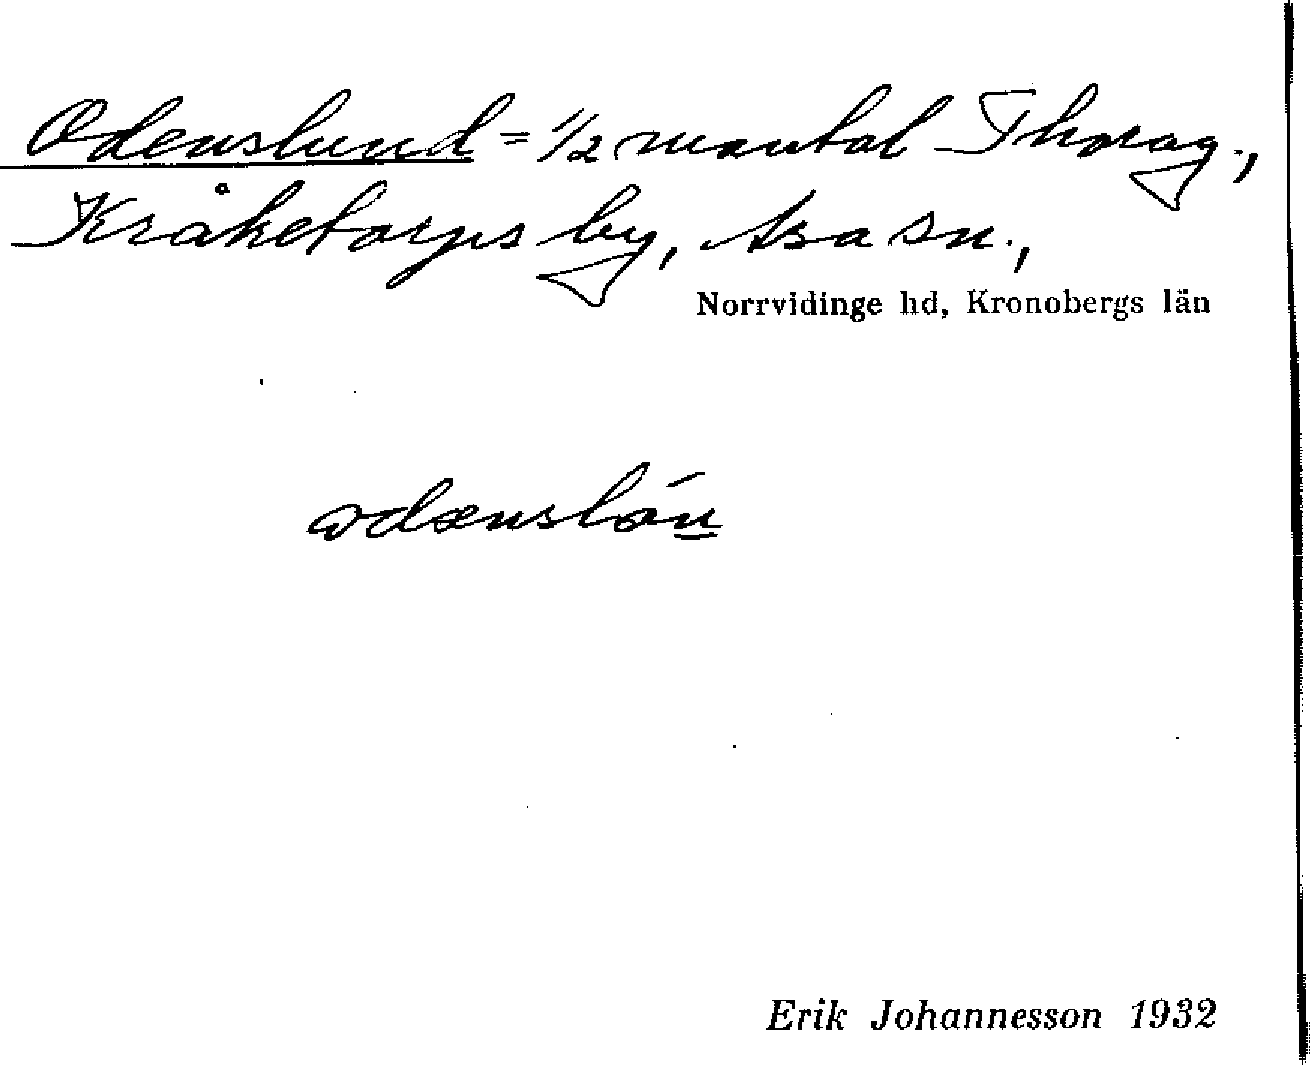 Odenslund = 1/2 mantal Thorag.,
Kråketorps by, Asa sn.,
Norrvidinge hd, Kronobergs län
Erik Johannesson 1932